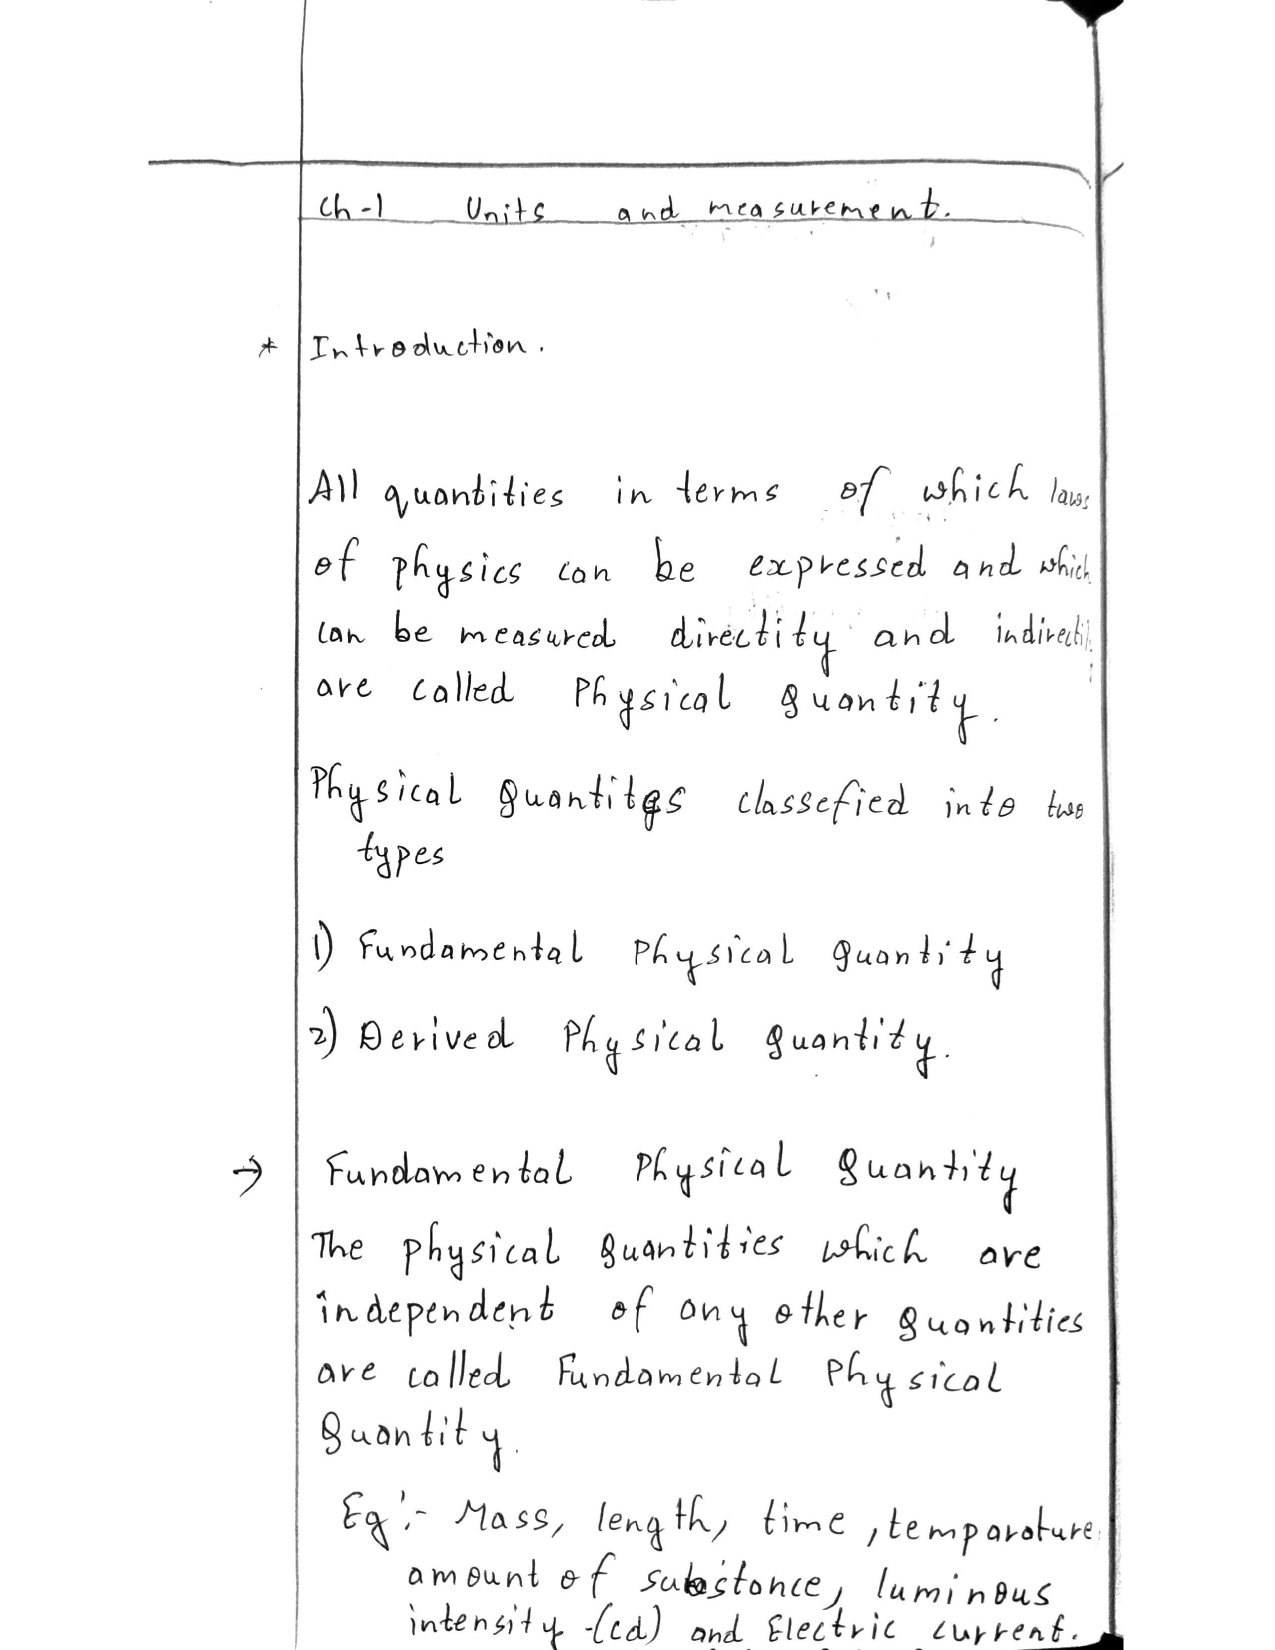 Ch-1 Units and measurement.
* Introduction.
All quantities in terms of which laws
of physics can be expressed and which
can be measured directity and
are called Physical Quantity.
Physical Quantites classefied into two
types
1) Fundamental Physical Quantity
2) Derived Physical Quantity.
→ Fundamental Physical Quantity
The physical Quantities which are
independent of any other Quantities
are called Fundamental Physical
Quantity.
Eg:- Mass, length, time, temparature
amount of substance, luminous
intensity -(cd) and Electric current.